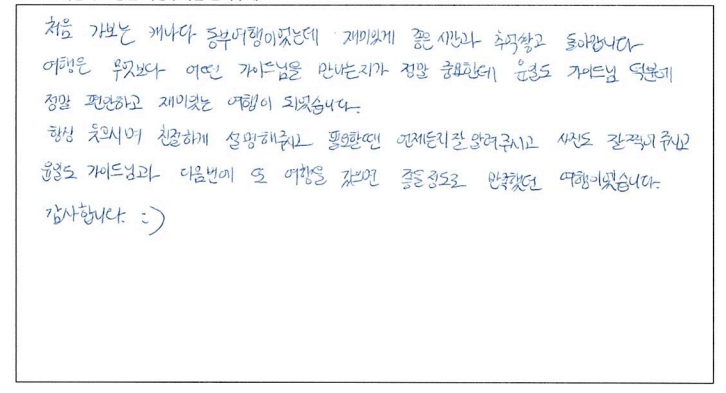 처음 가보는 캐나다 동부여행이었는데 재미있게 좋은 시간과 추억쌓고 돌아갑니다
여행은 무엇보다 어떤 가이드님을 만나는지가 정말 중요한데 윤철도 가이드님 덕분에
정말 편안하고 재미있는 여행이 되었습니다.
항상 웃으시며 친절하게 설명해주시고 필요할땐 언제든지 잘 알려주시고 사진도 잘찍어 주시고
윤철도 가이드님과 다음번에 또 여행을 갔으면 좋을정도로 만족했던 여행이었습니다.
감사합니다. :)